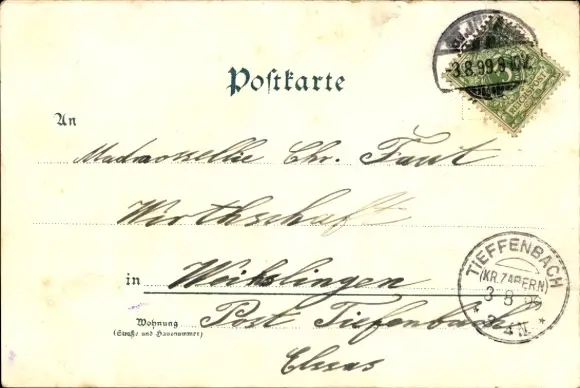 3.8.99.8
REICHSPOST
Postkarte
An
Mademoiselle Chr. Faut
Wirthschaft
in Weislingen
TIEFFENBACH
(KR. ZABERN)
3 8 99
Wohnung
(Straße und Hausnummer)
Post Tiefenbach
Elsas